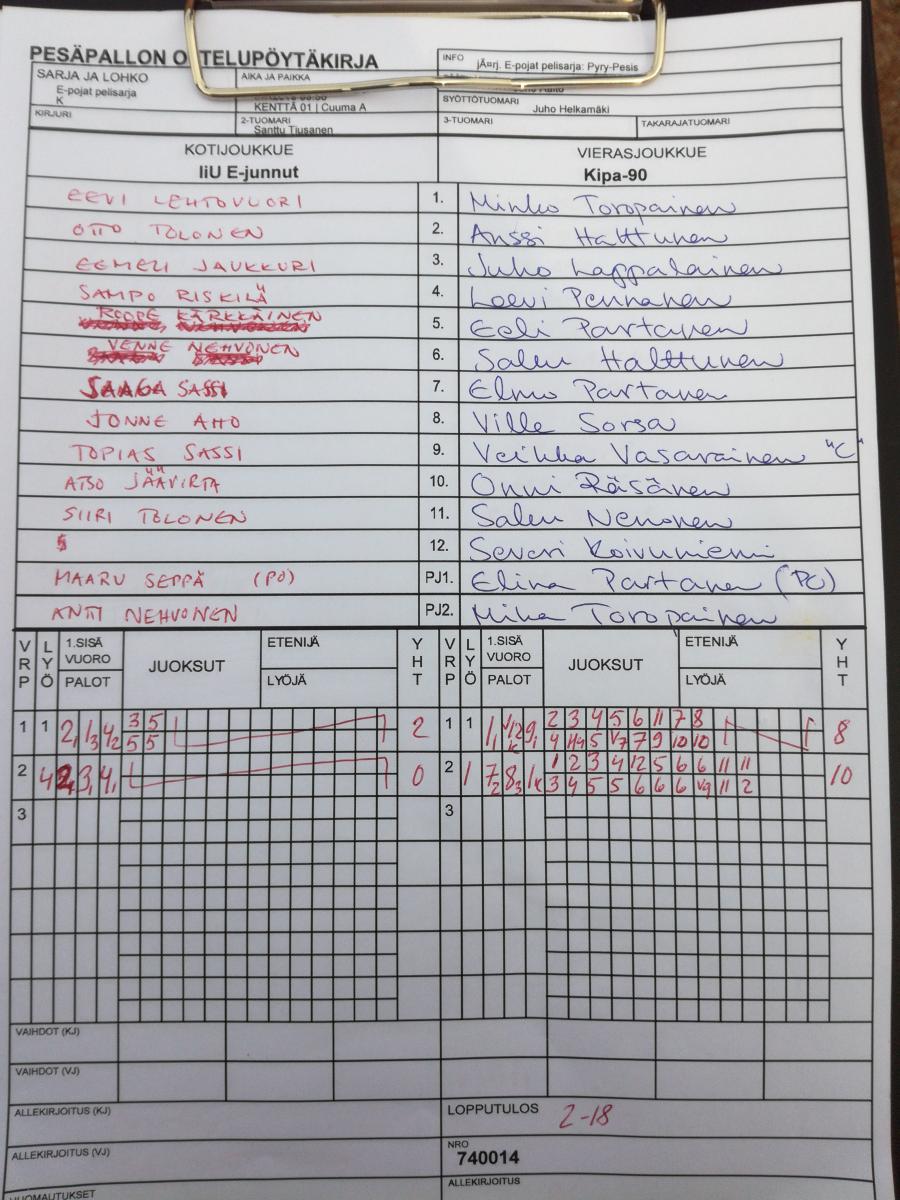 PESÄPALLON OTTELUPÖYTÄKIRJA
INFO
jÃ¤rj. E-pojat pelisarja: Pyry-Pesis
SARJA JA LOHKO
E-pojat pelisarja
K
AIKA JA PAIKKA
KENTTÄ 01 | Cuuma A
SYÖTTÖTUOMARI
Juho Helkamäki
KIRJURI
2-TUOMARI
Santtu Tiusanen
3-TUOMARI
TAKARAJATUOMARI
KOTIJOUKKUE
IiU E-junnut
VIERASJOUKKUE
Kipa-90
EEVI LEHTOVUORI 1. Minko Toropainen
OTTO TOLONEN 2. Anssi Halttunen
EEMELI JAUKKURI 3. Juho Lappalainen
SAMPO RISKILÄ 4. Leevi Pennanen
ROOPE KÄRKKÄINEN 5. Eeli Partanen
VENNE NEHVONEN 6. Salu Halttunen
SAAGA SASSI 7. Elmo Partanen
JONNE AHO 8. Ville Sorsa
TOPIAS SASSI 9. Veikka Vasarainen "C"
ATSO JÄÄVIRTA 10. Onni Räsänen
SIIRI TOLONEN 11. Salu Nenonen
12. Severi Koivuniemi
MAARU SEPPÄ (PO) PJ1. Elina Partanen (PO)
ANTI NEHVONEN PJ2. Mika Toropainen
VRP LYÖ 1.SISÄ VUORO PALOT JUOKSUT ETENIJÄ LYÖJÄ YHT VRP LYÖ 1.SISÄ VUORO PALOT JUOKSUT ETENIJÄ LYÖJÄ YHT
3 5 2 3 4 5 6 11 7 8
1 1 2, 1 3 4 2 2 1 1 8
5 5
2 4 2, 3, 4, 0 2 1 7 2 8 3 1k 10
1 2 3 4 12 5 6 6 11 11
3 3
VAIHDOT (KJ)
VAIHDOT (VJ)
ALLEKIRJOITUS (KJ)
LOPPUTULOS 2-18
ALLEKIRJOITUS (VJ)
NRO
740014
HUOMAUTUKSET
ALLEKIRJOITUS